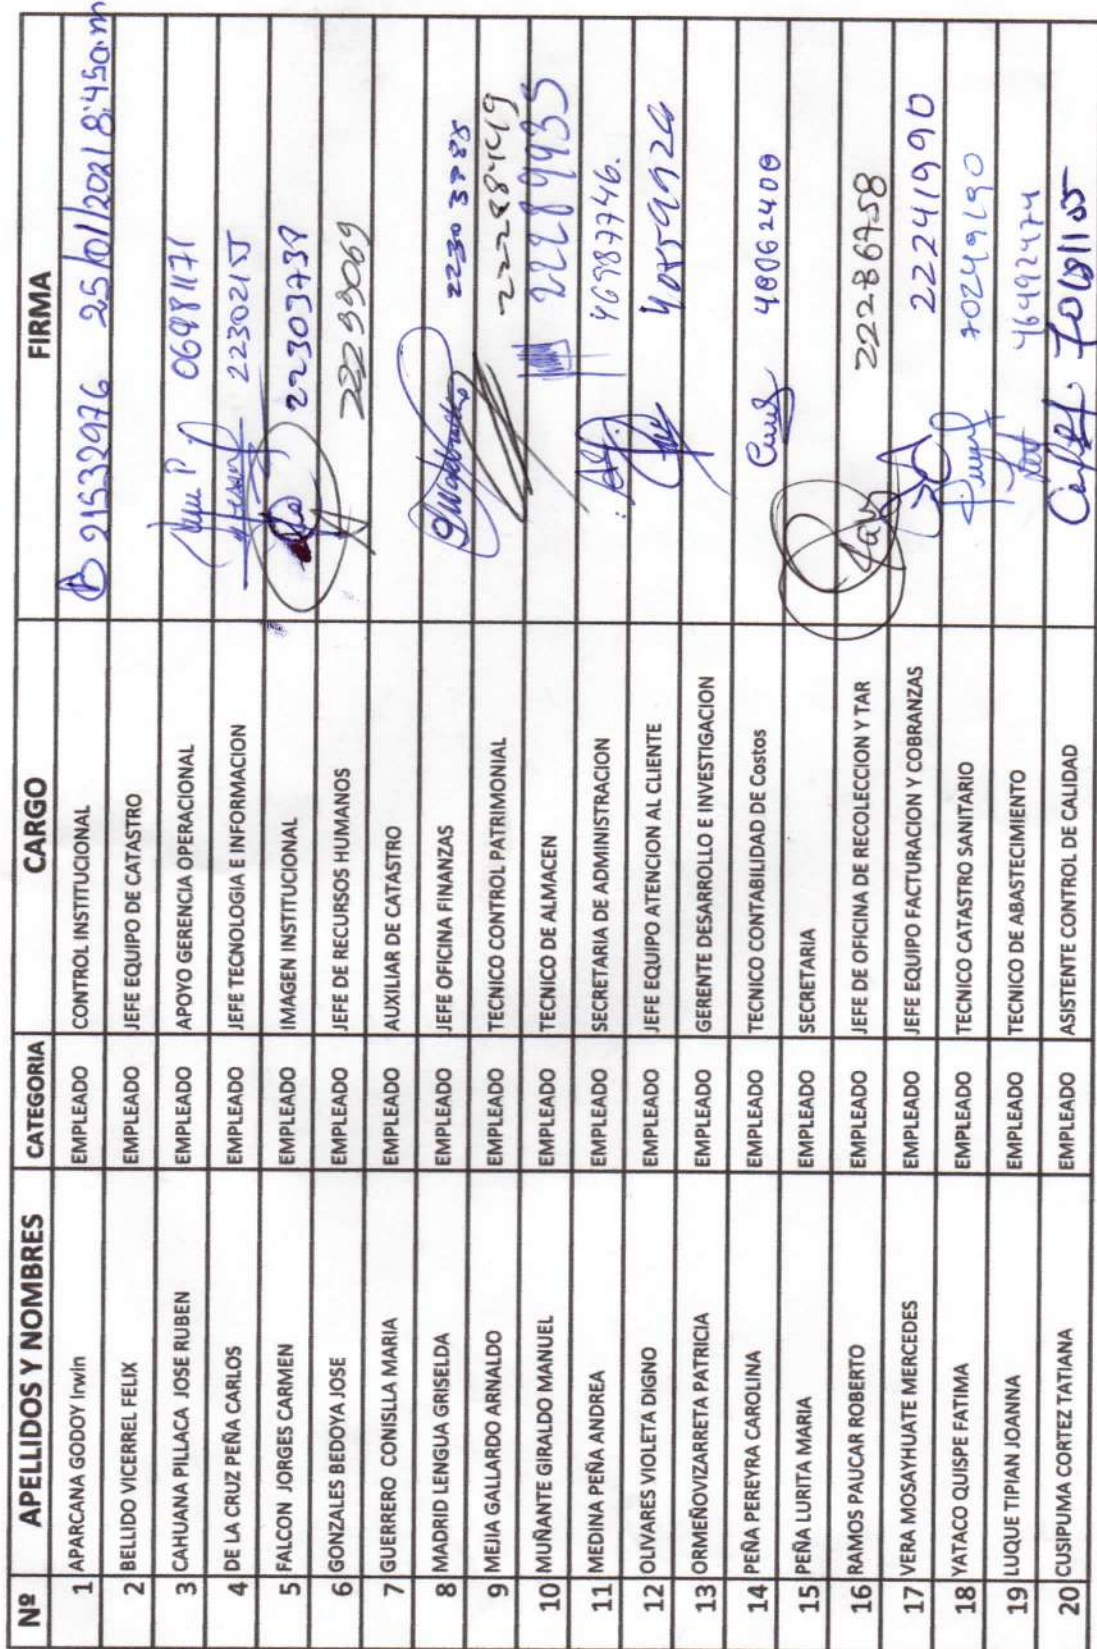 Nº APELLIDOS Y NOMBRES CATEGORIA CARGO FIRMA
1 APARCANA GODOY Irwin EMPLEADO CONTROL INSTITUCIONAL 21532976 25/01/2021 8:45a.m
2 BELLIDO VICERREL FELIX EMPLEADO JEFE EQUIPO DE CATASTRO
3 CAHUANA PILLACA JOSE RUBEN EMPLEADO APOYO GERENCIA OPERACIONAL 06981171
4 DE LA CRUZ PEÑA CARLOS EMPLEADO JEFE TECNOLOGIA E INFORMACION
5 FALCON JORGES CARMEN EMPLEADO IMAGEN INSTITUCIONAL 22303738
6 GONZALES BEDOYA JOSE EMPLEADO JEFE DE RECURSOS HUMANOS
7 GUERRERO CONISLLA MARIA EMPLEADO AUXILIAR DE CATASTRO
8 MADRID LENGUA GRISELDA EMPLEADO JEFE OFICINA FINANZAS
9 MEJIA GALLARDO ARNALDO EMPLEADO TECNICO CONTROL PATRIMONIAL
10 MUÑANTE GIRALDO MANUEL EMPLEADO TECNICO DE ALMACEN
11 MEDINA PEÑA ANDREA EMPLEADO SECRETARIA DE ADMINISTRACION 46987746.
12 OLIVARES VIOLETA DIGNO EMPLEADO JEFE EQUIPO ATENCION AL CLIENTE
13 ORMEÑOVIZARRETA PATRICIA EMPLEADO GERENTE DESARROLLO E INVESTIGACION
14 PEÑA PEREYRA CAROLINA EMPLEADO TECNICO CONTABILIDAD DE Costos 40062400
15 PEÑA LURITA MARIA EMPLEADO SECRETARIA
16 RAMOS PAUCAR ROBERTO EMPLEADO JEFE DE OFICINA DE RECOLECCION Y TAR 22286758
17 VERA MOSAYHUATE MERCEDES EMPLEADO JEFE EQUIPO FACTURACION Y COBRANZAS 22241990
18 YATACO QUISPE FATIMA EMPLEADO TECNICO CATASTRO SANITARIO 70249190
19 LUQUE TIPIAN JOANNA EMPLEADO TECNICO DE ABASTECIMIENTO 46492474
20 CUSIPUMA CORTEZ TATIANA EMPLEADO ASISTENTE CONTROL DE CALIDAD